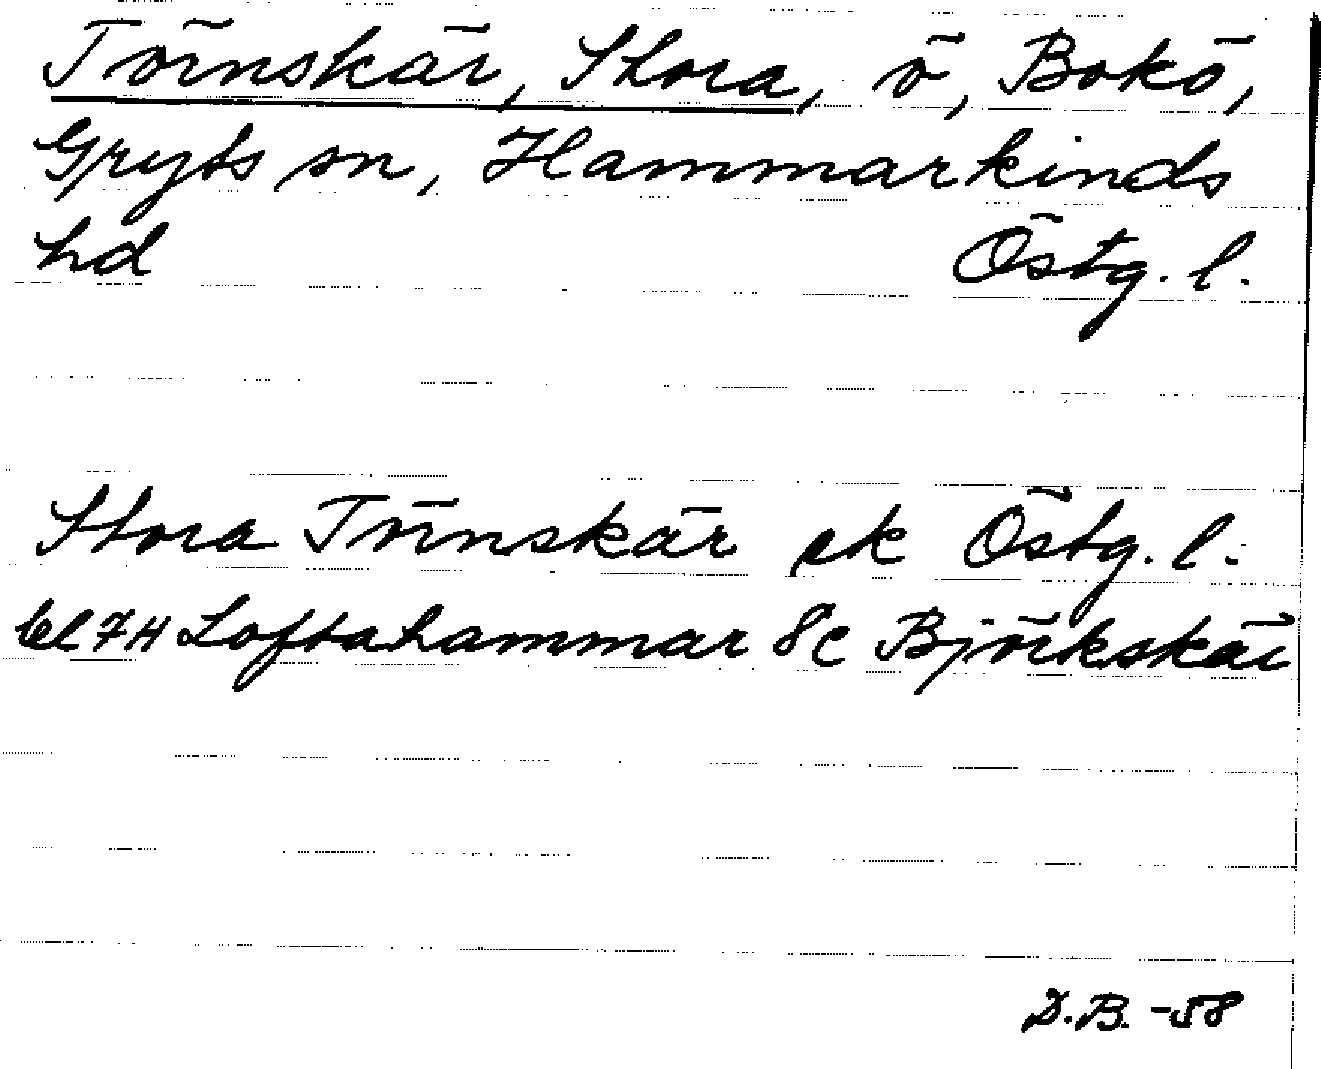 Törnskär, Stora, ö, Bokö,
Gryts sn, Hammarkinds
hd Östg. l.
Stora Törnskär ek Östg. l.
bl 7H Loftahammar 8c Björkskär
D.B. -58